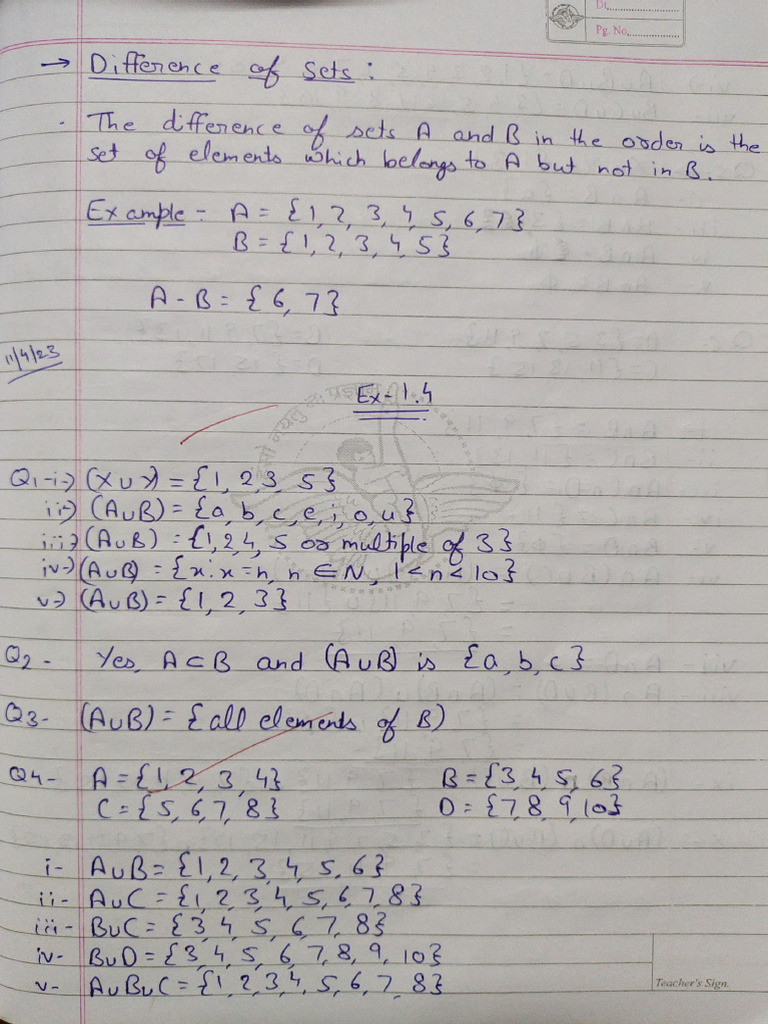 Dt.
Pg. No.
→ Difference of Sets :
. The difference of sets A and B in the order is the
set of elements which belongs to A but not in B.
Example - A = {1, 2, 3, 4, 5, 6, 7}
B = {1, 2, 3, 4, 5}
A - B = { 6, 7}
11/4/23
Ex - 1.4
Q1-i-) (X∪Y) = {1, 2, 3, 5}
ii-) (A∪B) = {a, b, c, e, i, o, u}
iii-) (A∪B) = {1, 2, 4, 5 or multiple of 3}
iv-) (A∪B) = {x : x = n, n ∈ N, 1 < n < 10}
v-) (A∪B) = {1, 2, 3}
Q2 - Yes, A ⊂ B and (A∪B) is {a, b, c}
Q3- (A∪B) = {all elements of B)
Q4- A = {1, 2, 3, 4} B = {3, 4, 5, 6}
C = {5, 6, 7, 8} D = {7, 8, 9, 10}
i- A∪B = {1, 2, 3, 4, 5, 6}
ii- A∪C = {1, 2, 3, 4, 5, 6, 7, 8}
iii- B∪C = {3, 4, 5, 6, 7, 8}
iv- B∪D = {3, 4, 5, 6, 7, 8, 9, 10}
v- A∪B∪C = {1, 2, 3, 4, 5, 6, 7, 8}
Teacher's Sign.